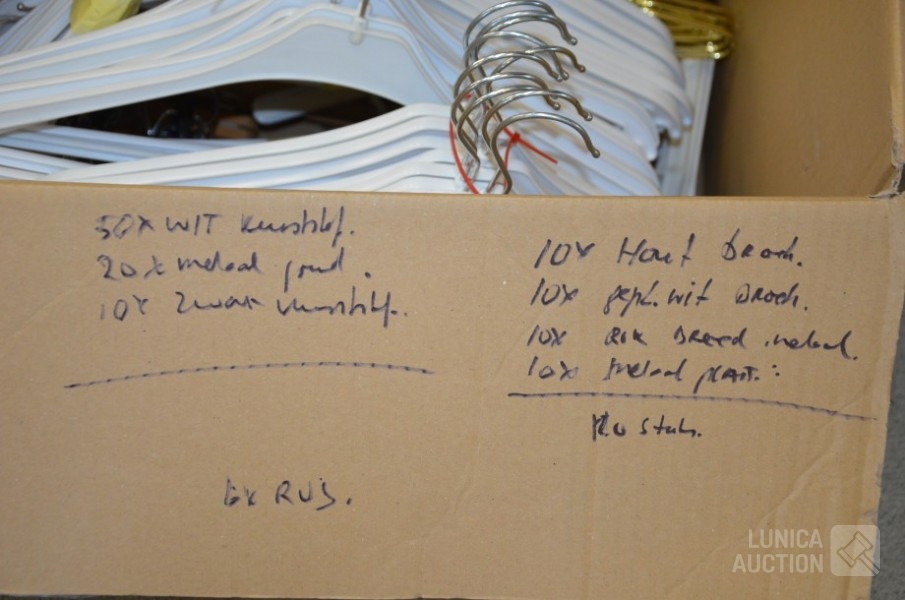 50x WIT kunststof.
20x metaal goud.
10x zwart kunststof.
10x Hout Broek.
10x gepl. wit Broek.
10x Breed metaal.
10x metaal plat.:
120 stuks.
6x RUS.
LUNICA
AUCTION